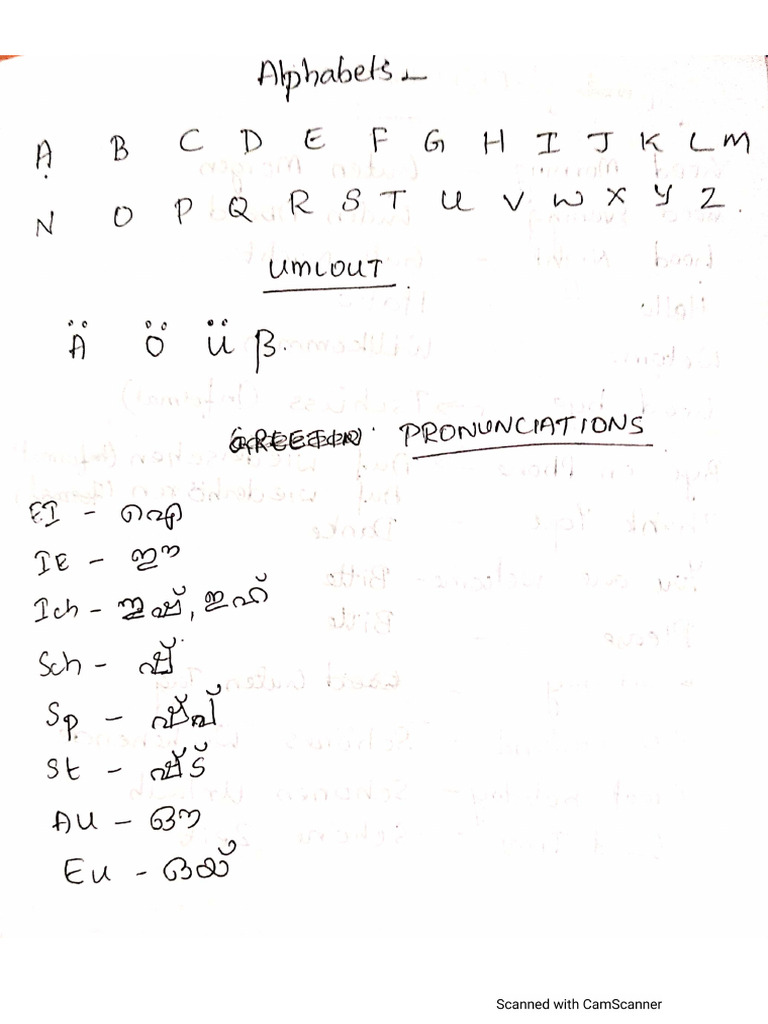 Alphabets -
A B C D E F G H I J K L M
N O P Q R S T U V W X Y Z.
UMLOUT
Ä Ö Ü β.
PRONUNCIATIONS
EI - ഐ
IE - ഈ
Ich - ഇഷ്, ഇഹ്
Sch - ഷ്
Sp. - ഷ്പ്
St - ഷ്ട്
AU - ഔ
Eu - ഒയ്
Scanned with CamScanner